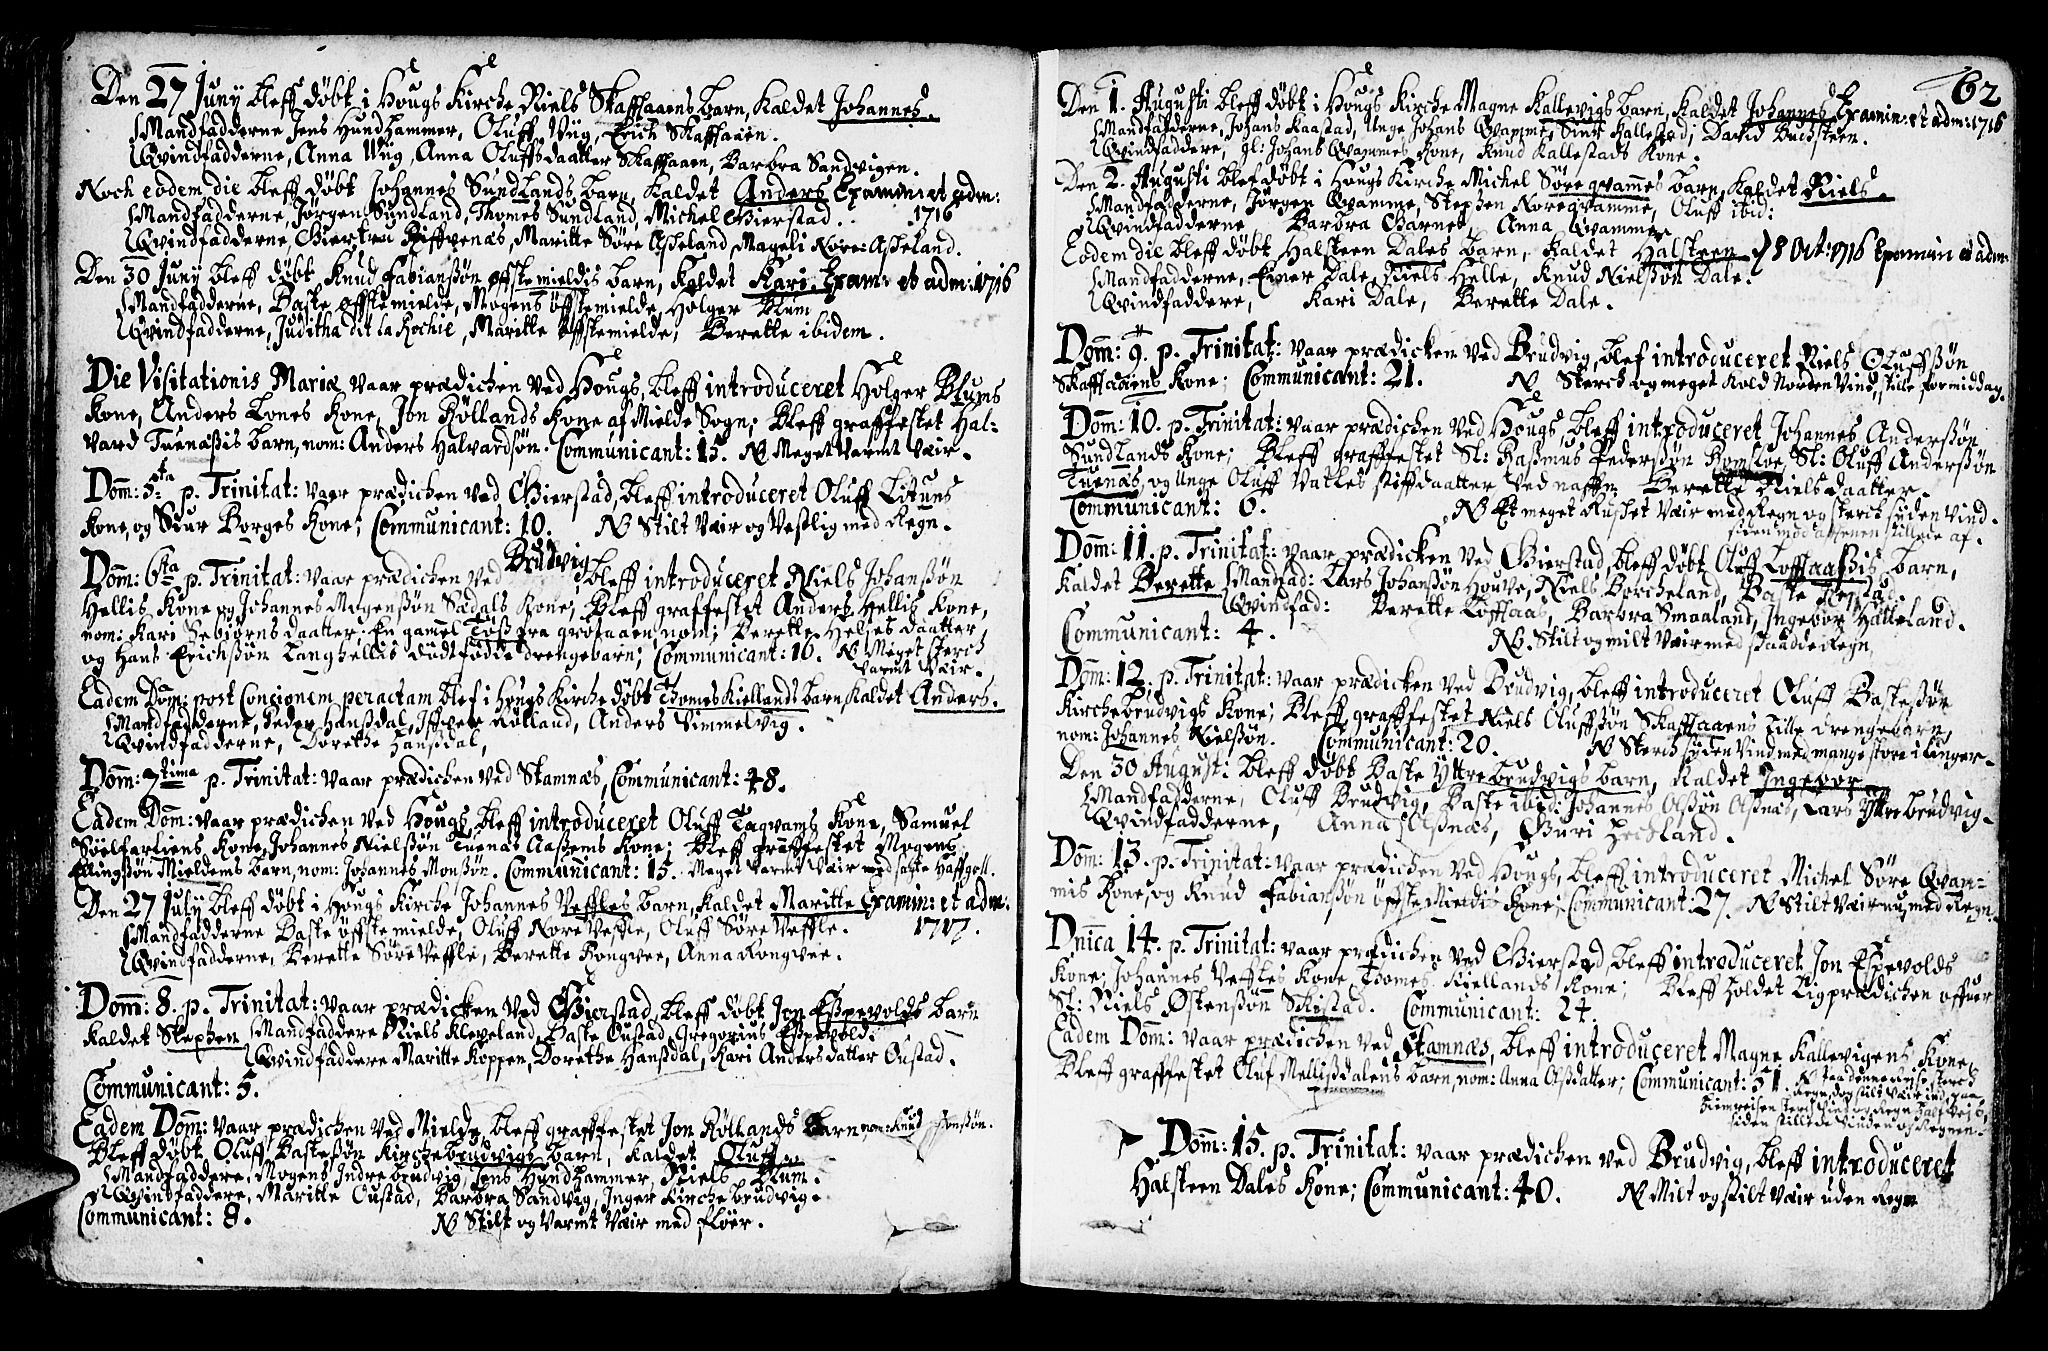 Den 27 Juny bleff döbt i Hougs Kirche Niels Skaffaaens barn, kaldet Johannes.
Mandfadderne Jens Hundhammer, Oluff Wiig, Erich Skaffaaen.
Qvindfadderne, Anna Wiig, Anna Oluffsdaatter Skaffaaen, Barbra Sandvigen.
Noch eodem die bleff döbt Johannes Sundlands barn, kaldet Anders Examin: et adm:
Mandfadderne, Jörgen Sundland, Thomes Sundland, Michel Gierstad. 1716
Qvindfadderne, Giertru Riffvenæs, Maritte Söre Asheland, Mageli Nore Asheland.
Den 30 Juny bleff döbt Knud Fabianssön öffstemieldis barn, kaldet Kari. Exam: et adm: 1716
Mandfadderne, Baste öffstemielde, Mogens öffstemielde, Holger Blum
Qvindfadderne, Juditha dit la Rochie, Maritte öffstemielde, Berette ibidem.
Die Visitationis Mariæ vaar prædichen ved Hougs, bleff introduceret Holger Blums
Kone, Anders Lones Kone, Jon Röllands Kone af Mielde Sogn; Bleff graffestet Hal-
vard Tuenæssis barn, nom: Anders Halvardsön. Communicant: 15. NB Meget varmt Vær.
Dom: 5ta p. Trinitat: vaar prædichen ved Gierstad, bleff introduceret Oluff Lötuns
Kone, og Siur Borges Kone; Communicant: 10. NB Stilt Vær og Vestlig med Regn.
Dom: 6ta p. Trinitat: vaar prædichen ved Brudvig, bleff introduceret Niels Johanssön
Hellis Kone og Johannes Mogenssön Sædals Kone; Bleff graffestet Anders Hellis Kone,
nom: Kari Sebiörns daatter. En gamel Töss fra grösaaen nom: Berette Helies daatter
og Hans Erichssön Langhellis dödfödde drengebarn; Communicant: 16. NB Meget sterch
varmt Vær.
Eadem Dom: post Concionem peractam blef i Hougs Kirche döbt Thomes Kiellands barn, kaldet Anders.
Mandfadderne, Peder Hanssdal, Iffver Rolland, Anders Simmelvig.
Qvindfadderne, Dorethe Hanssdal,
Dom: 7tima p. Trinitat: vaar prædichen ved Stamnæs, Communicant: 48.
Eadem Dom: vaar prædichen ved Hougs, bleff introduceret Oluff Tægvams Kone, Samuel
Söelfarliens Kone, Johannes Nielssön Tuenæs Aassems Kone; Bleff graffestet Mogens
Ellingssön Mieldems barn, nom: Johannes Monssön. Communicant: 15. Meget varmt Vær med sagte Haffgull.
Den 27 July bleff döbt i Hougs Kirche Johannes Vefles barn, kaldet Maritte Examin: et adm:
Mandfadderne Baste öffstemielde, Oluff Nore Veffle, Oluff Söre Veffle. 1717.
Qvindfadderne, Berette Söre Veffle, Berette Rongvee, Anna Rongvee.
Dom: 8. p. Trinitat: vaar prædicken ved Gierstad, bleff döbt Jon Espevolds barn
kaldet Stephen Mandfaddere Niels Kleveland, Baste Oustad, Gregorius Espevold.
Qvindfaddere Maritte Koppen, Dorethe Hanssdal, Kari Anders datter Oustad.
Communicant: 5.
Eadem Dom: vaar prædichen ved Mielde, bleff graffestet Jon Röllands barn, nom: Knud Jonssön.
Bleff döbt Oluff Bastessön Kirchebrudvigs barn, kaldet Oluff.
Mandfaddere, Mogens Indrebrudvig, Jens Hundhammer, Niels Blum.
Qvindfaddere, Maritte Oustad, Barbra Sandvig, Inger Kirchebrudvig.
Communicant: 8. NB Stilt og Varmt Vær med flöer.
62
Den 1. Augusti bleff döbt i Hougs Kirche Magne Kallevigs barn, kaldet Johannes Examin: et adm: 1716
Mandfadderne, Johans Kaastad, Unge Johans Qvamme, Siur Kallestad, David Buchsteen.
Qvindfaddere, gl: Johans Qvammes Kone, Knud Kallestads Kone.
Den 2. Augusti blef döbt i Hougs Kirche Michel Söreqvammes barn, kaldet Niels.
Mandfadderne, Jörgen Qvamme, Stephen Noreqvamme, Oluff ibid:
Qvindfadderne Barbra Garnes, Anna Qvamme
Eodem die bleff döbt Halsteen Dales barn, kaldet Halsteen 8 Oct: 1716 Examin et adm
Mandfadderne, Einer Dale, Niels Helle, Knud Nielssön Dale.
Qvindfaddere, Kari Dale, Berette Dale.
Dom: 9. p. Trinitat: vaar prædicken ved Brudvig, blef introduceret Niels Oluffssön
Skaffaaens Kone; Communicant: 21. NB Sterch og meget kold Norden Vind, stille formiddag.
Dom: 10. p. Trinitat: vaar prædichen ved Hougs, bleff introduceret Johannes Anderssön
Sundlands Kone; Bleff graffestet Sl: Rasmus Pederssön Romsloe, Sl: Oluff Anderssön
Tuenæs, og Unge Oluff Vatles stiffdaatter ved naffn Berette Nielsdaatter.
Communicant: 6. NB Et meget Rusket Vær med Regn og sterck syden Vind.
siden mod afftenen stillede af.
Dom: 11. p. Trinitat: vaar prædicken ved Gierstad, bleff döbt Oluff Loffaassis barn,
kaldet Berette Mandfad: Lars Johanssön Houve, Niels Borcheland, Baste Reppstad.
Qvindfad: Berette Loffaas, Barbra Smaaland, Ingebor Hatleland.
Communicant: 4. NB. Stilt og milt Vær med Staadde Regn,
Dom: 12. p. Trinitat: vaar prædicken ved Brudvig, bleff introduceret Oluff Bastessön
Kirchebrudvigs Kone; Bleff graffestet Niels Oluffssön Skaffaaens Lille drengebarn,
nom: Johannes Nielssön. Communicant: 20. NB Sterch syden Vind med mange store ilinger.
Den 30 August: bleff döbt Baste Yttrebrudvigs barn, kaldet Ingebor
Mandfadderne, Oluff Brudvig, Baste ibid: Johannes Olssön Olsnæs, Lars Yttrebrudvig.
Qvindfadderne, Anna Olsnæs, Guri Heckland.
Dom: 13. p. Trinitat: vaar prædichen ved Hougs, bleff introduceret Michel Söre Qvam-
mis Kone, og Knud Fabianssön öffstemieldis Kone; Communicant: 27. NB Stilt Vær nu, med Regn.
Dnica 14. p. Trinitat: vaar prædichen ved Gierstad, bleff introduceret Jon Espevolds
Kone, Johannes Veffles Kone, Thomes Kiellands Kone; Bleff holdet Ligprædichen offver
Sl: Niels Östenssön Skistad. Communicant: 24.
Eadem Dom: vaar prædichen ved Stamnæs, bleff introduceret Magne Kallevigens Kone,
Bleff graffestet Oluf Mellissdalens barn, nom: Anna Olssdatter; Communicant: 51. NB paa denne Reise sterch
Regn, dog stilt Vær ind, paa
Hiemreisen sterch Vind og Regn halfveis,
siden stillede Vinden og Regnen.
Dom: 15. p. Trinitat: vaar prædichen ved Brudvig, bleff introduceret
Halsteen Dales Kone; Communicant: 40. NB Milt og stilt Vær uden Regn